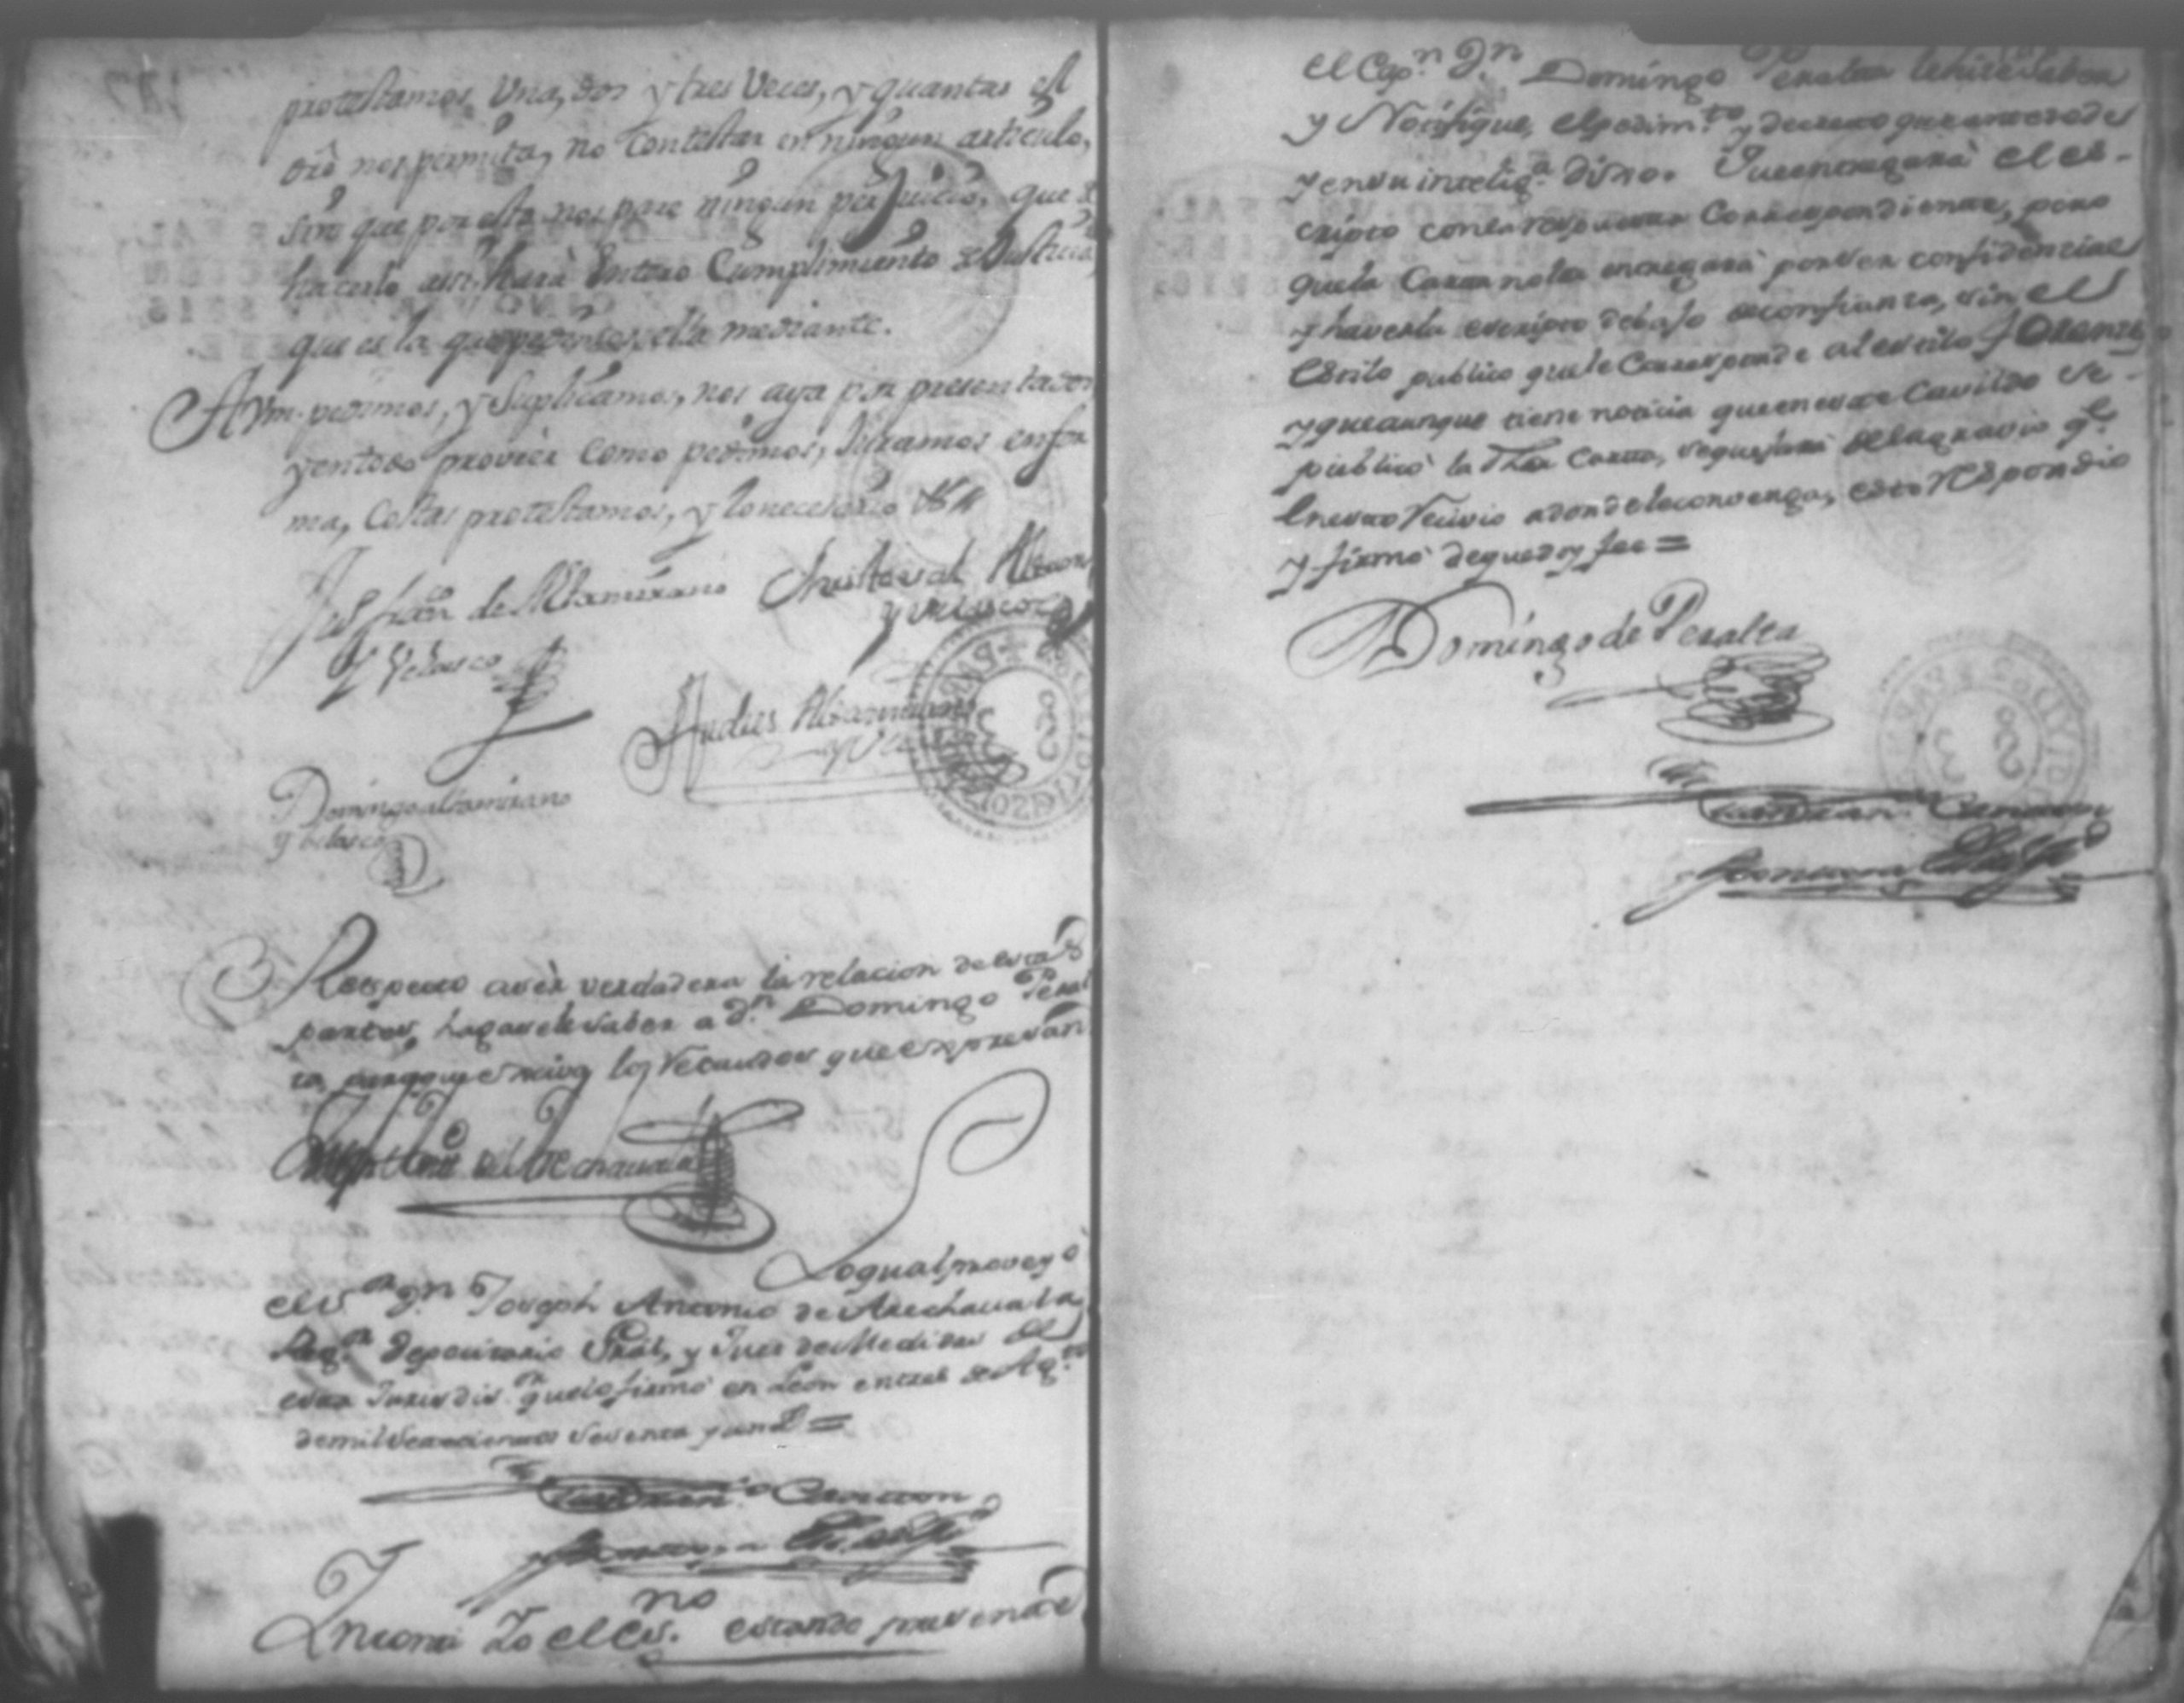 protestamos Una, dos y tres Veces, y quantas el
dro nos permita, no Contestar en ningun articulo,
sin que por esto nos pare ningun perjuicio, que de
hacerlo assi hará Entero Cumplimiento de Justicia,
que es la que pedimos, ella mediante.
A Vm. pedimos, y Suplicamos, nos aya por presentados
y en todo proveer Como pedimos, Juramos en for
ma, Costas protestamos, y lo necesario &a
de Altamirano Christoval Altam
y Velasco
y Velasco
Andres Altamirano
y Ve
Domingo altamirano
y belasco
Respecto a ser verdadera la relacion de estas
partes, hagasele saber a Dn. Domingo Peral
ta, para que exiva los Recaudos que expresan
de Arechavala
Lo qual proveyó
el Sor. Dn. Joseph Antonio de Arechavala,
Regor. Depositario Gral, y Juez de Medidas de
esta Jurisdion. que lo firmó en Leon en tres de Agto.
de mil setecientos sesenta y un as =
Carrion
En continti Yo el esno. estando presente
el Capn. Dn. Domingo Peralta le hice saber
y Notifique, el pedimto. y decreto que antecede
y en su inteliga. dixo. Que entregará el es-
cripto con la respuesta Correspondiente, pero
que la Carta no la entregará por ser confidencial
y haverla escripto debajo de confianza, sin el
Estilo publico que le Corresponde al estilo forense
y que aunque tiene noticia que en este Cavildo se
publicó la dha Carta, se quejará del agravio qe.
en esto recivio a donde le convenga, esto respondio
y firmó de que doy fee =
Domingo de Peralta
Carrion